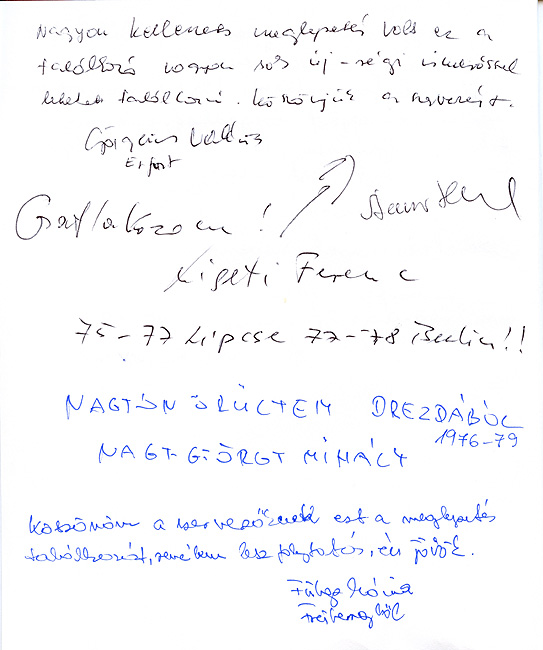 Nagyon kellemes meglepetés volt ez a
találkozó nagyon sok új-régi ismerőssel
lehetett találkozni. Köszönjük a szervezést.
Erfurt
Csatlakozom!
Ligeti Ferenc
75-77 Lipcse 77-78 Berlin!!
NAGYON ÖRÜLTEM DREZDÁBÓL
1976-79
NAGY-GYÖRGY MIHÁLY
Köszönöm a szervezőknek ezt a meglepetés
találkozást, remélem lesz folytatás, én jövök.
Mária
Freibergből